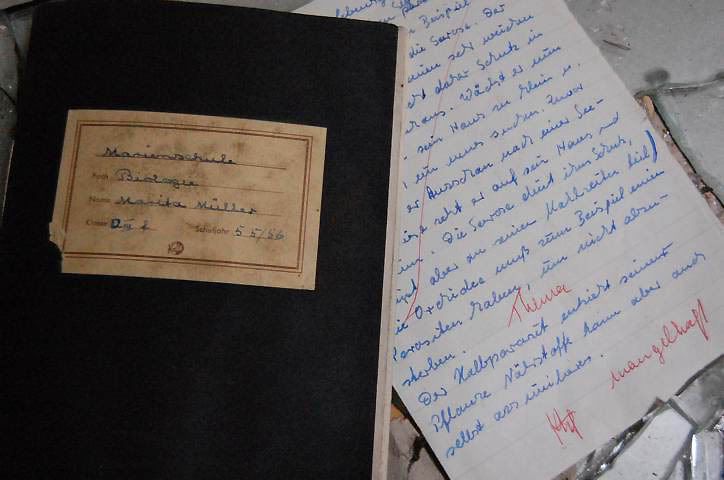 Marienschule
Fach Biologie
Name Marita Müller
Klasse Schuljahr 55/56
Beispiel
die Serose. Der
sehr weichen
daher Schutz in
aus. Wächst er nun
sein Haus zu klein u.
ein neues suchen. Zuvor
er Ausschau nach einer See-
setzt er auf sein Haus und
Die Serose dient ihm Schutz,
aber an seinen Mahlzeiten teil
Orchidee muß zum Beispiel einen
Parasiten haben, um nicht abzu-
sterben. Thema
Der Halbparasit entzieht seiner
Pflanze Nährstoffe kann aber auch
selbst assimilieren.
mangelhaft